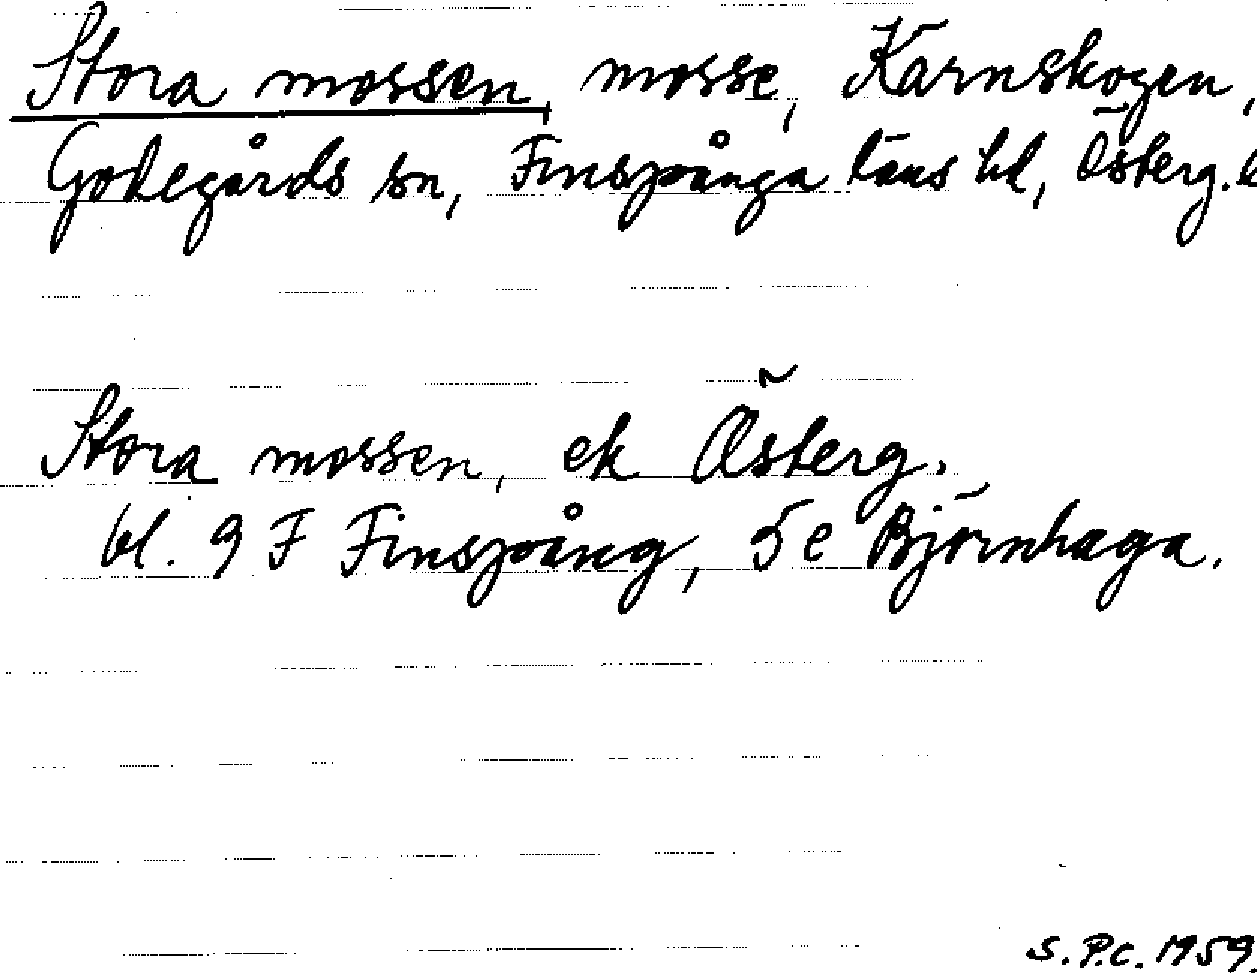 Stora mossen, mosse, Kärnskogen,
Godegårds sn, Finspånga läns hd, Österg.
Stora mossen, ek Österg.
bl. 9 F Finspång, 5 e Björnhaga.
S.P.C. 1959.